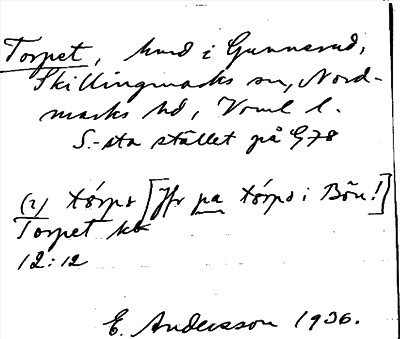 Torpet, hmd i Gunnerud,
Skillingmarks sn, Nord-
marks hd, Vrml l.
S.-sta stället på G78
(2) tórpə [Jfr pa tórpə i Bön!]
Torpet kk
12:12
E. Andersson 1936.